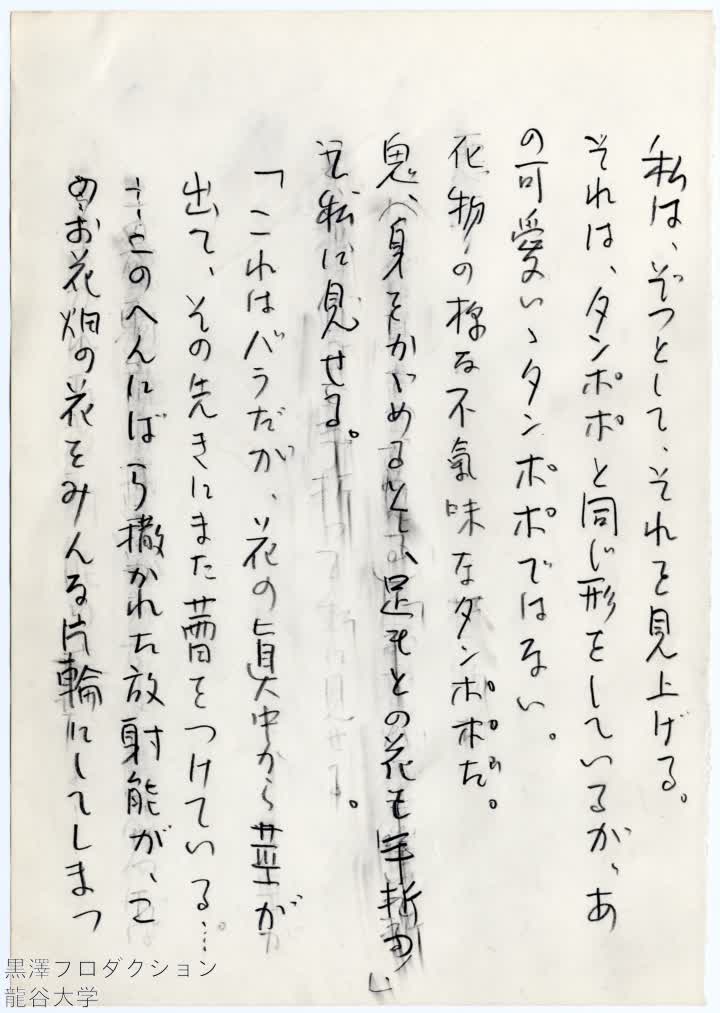 私は、ぞつとして、それを見上げる。
それは、タンポポと同じ形をしているが、あ
の可愛いゝタンポポではない。
化物の様な不氣味なタンポポだ。
鬼、身をかゞめると、足もとの花を
を私に見せる。
「これはバラだが、花の眞中から莖が
出て、その先きにまた蕾をつけている…
…このへんにばら撒かれた放射能が、こ
のお花畑の花をみんな片輪にしてしまつ
黒澤プロダクション
龍谷大学